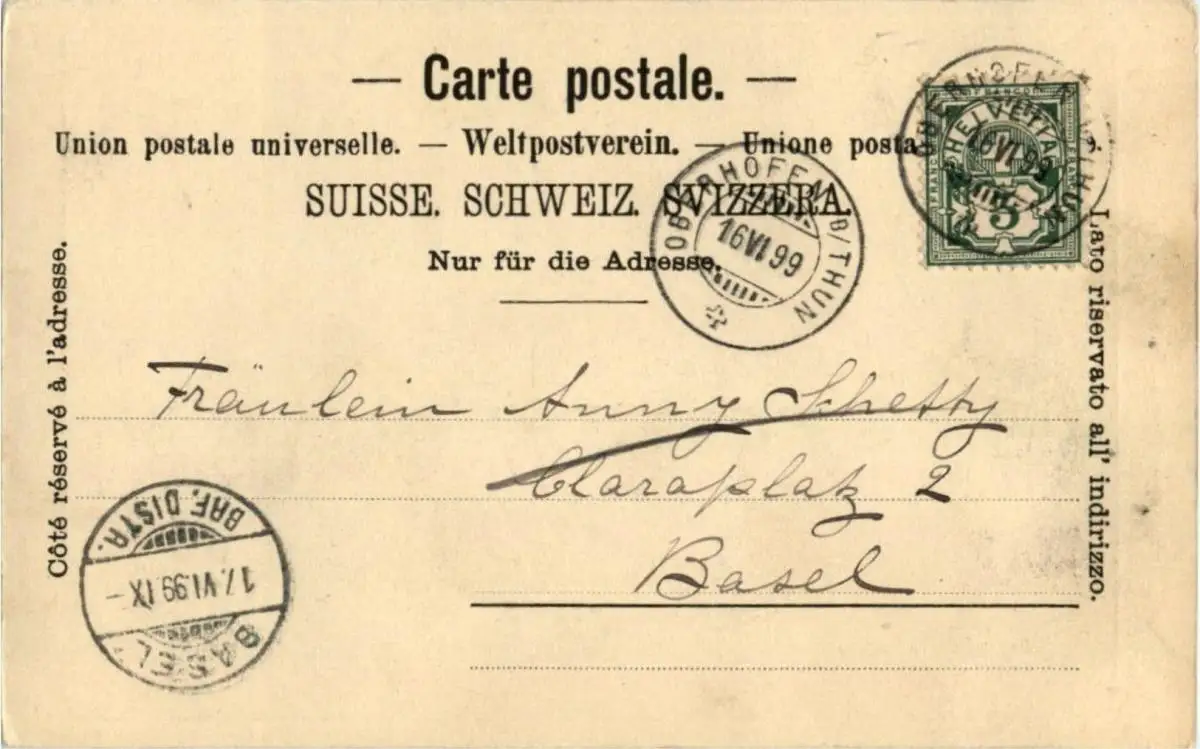 — Carte postale. —
Union postale universelle. — Weltpostverein. — Unione posta
SUISSE. SCHWEIZ. SVIZZERA.
Nur für die Adresse.
Côté réservé à l'adresse.
Lato riservato all' indirizzo.
OBERHOFEN B/THUN
16 VI 99
OBERHOFEN B/THUN
16 VI 99
FRANCO
HELVETIA
5
Fräulein Anny Schetty
Claraplatz 2
Basel
BRF. DISTR.
17. VI. 99 IX –
BASEL